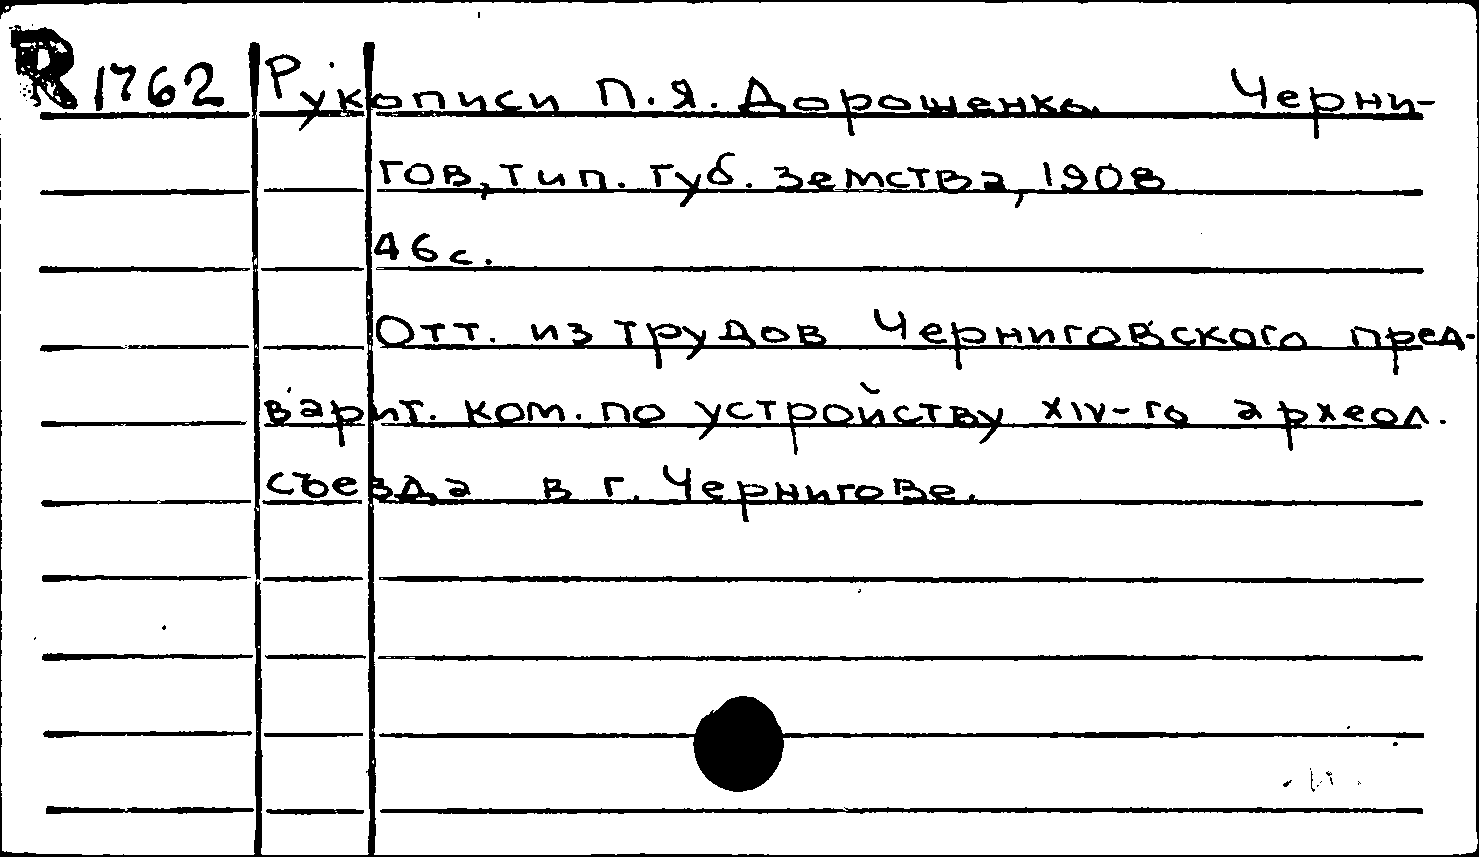 R 1762 Рукописи П. Я. Дорошенко. Черни-
гов, тип. губ. земства, 1908
46 с.
Отт. из трудов Черниговского пред-
варит. ком. по устройству XIV-го археол.
съезда в г. Чернигове.